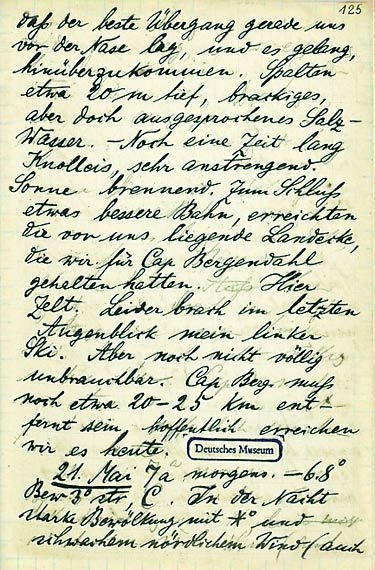 125
daß der beste Übergang gerade uns
vor der Nase lag, und es gelang,
hinüberzukommen. Spalten
etwa 20 m tief, brackiges,
aber doch ausgesprochenes Salz-
Wasser. – Noch eine Zeit lang
Knolleis, sehr anstrengend.
Sonne brennend. Zum Schluß
etwas bessere Bahn, erreichten
die vor uns liegende Landecke,
die wir für Cap Bergendahl
gehalten hatten. Hier
Zelt. Leider brach im letzten
Augenblick mein linker
Ski. Aber noch nicht völlig
unbrauchbar. Cap Berg. muß
noch etwa 20–25 km ent-
fernt sein, hoffentlich erreichen
wir es heute.
Deutsches Museum
21. Mai 7a morgens. –6.8°
Bew 3° str, C. In der Nacht
starke Bewölkung mit *° und
schwachem nördlichem Wind (auch